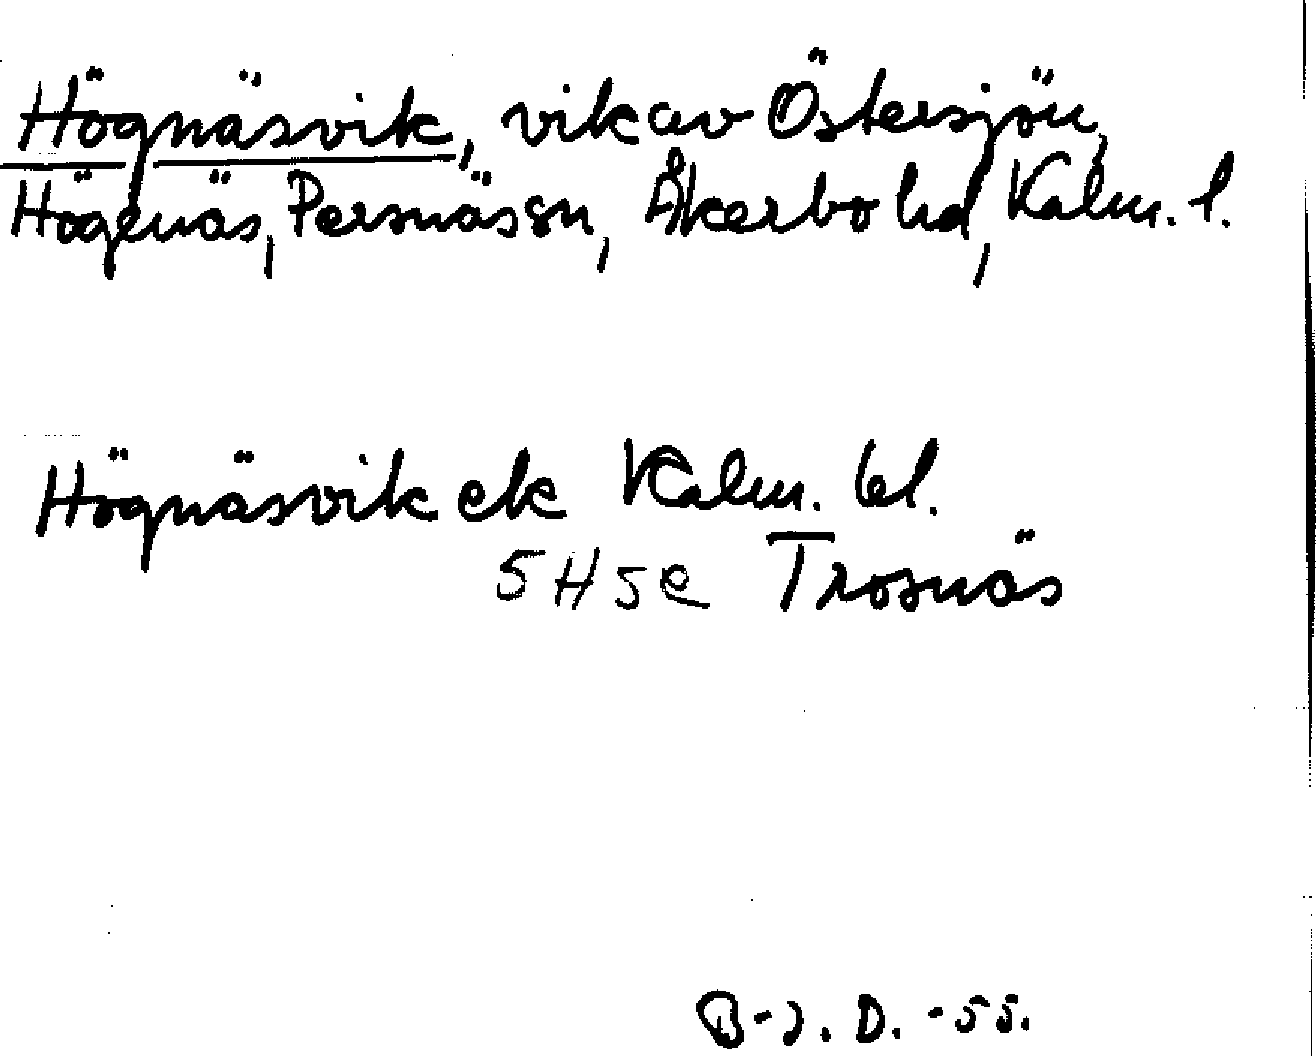 Högnäsvik, vik av Östersjön,
Högenäs, Persnäs sn, Åkerbo hd, Kalm. l.
Högnäsvik ek Kalm. bl.
5H5e Trosnäs
B-J. D. -55.